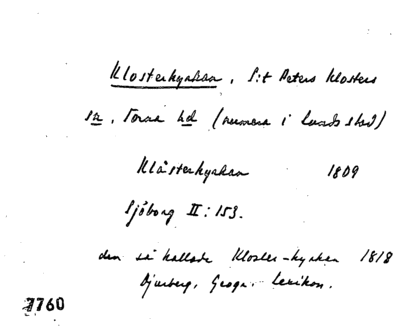 Klosterkyrkan, S:t Peters Klosters
sn, Torna hd (numera i Lunds stad)
Klåsterkyrkan 1809
Sjöborg II: 153.
den så kallade Kloster-kyrkan 1818
Djurberg, Geogr. Lexikon.
7760